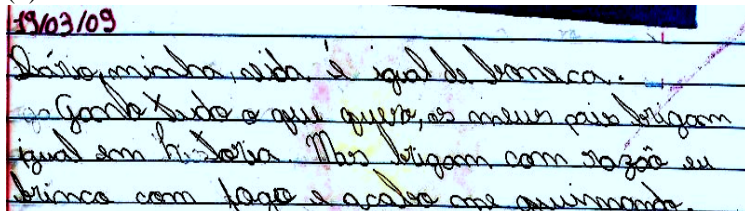 19/03/09
Diário, minha vida é igual de boneca.
Ganho tudo o que quero, os meus pais brigam
igual em história. Mas brigam com razão eu
brinco com fogo e acabo me queimando.